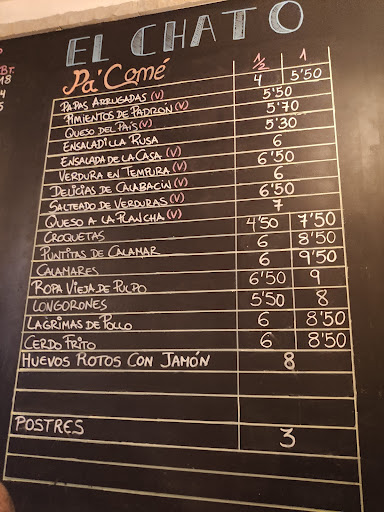 EL CHATO
Pa' Comé ½ 1
PAPAS ARRUGADAS (V) 4 5'50
PIMIENTOS DE PADRÓN (V) 5'50
QUESO DEL PAÍS (V) 5'70
ENSALADILLA RUSA 5'30
ENSALADA DE LA CASA (V) 6
VERDURA EN TEMPURA (V) 6'50
DELICIAS DE CALABACÍN (V) 6
SALTEADO DE VERDURAS (V) 6'50
QUESO A LA PLANCHA (V) 7
CROQUETAS 4'50 7'50
PUNTITAS DE CALAMAR 6 8'50
CALAMARES 6 9'50
ROPA VIEJA DE PULPO 6'50 9
LONGORONES 5'50 8
LAGRIMAS DE POLLO 6 8'50
CERDO FRITO 6 8'50
HUEVOS ROTOS CON JAMÓN 8
POSTRES 3
BT.
18
4
5